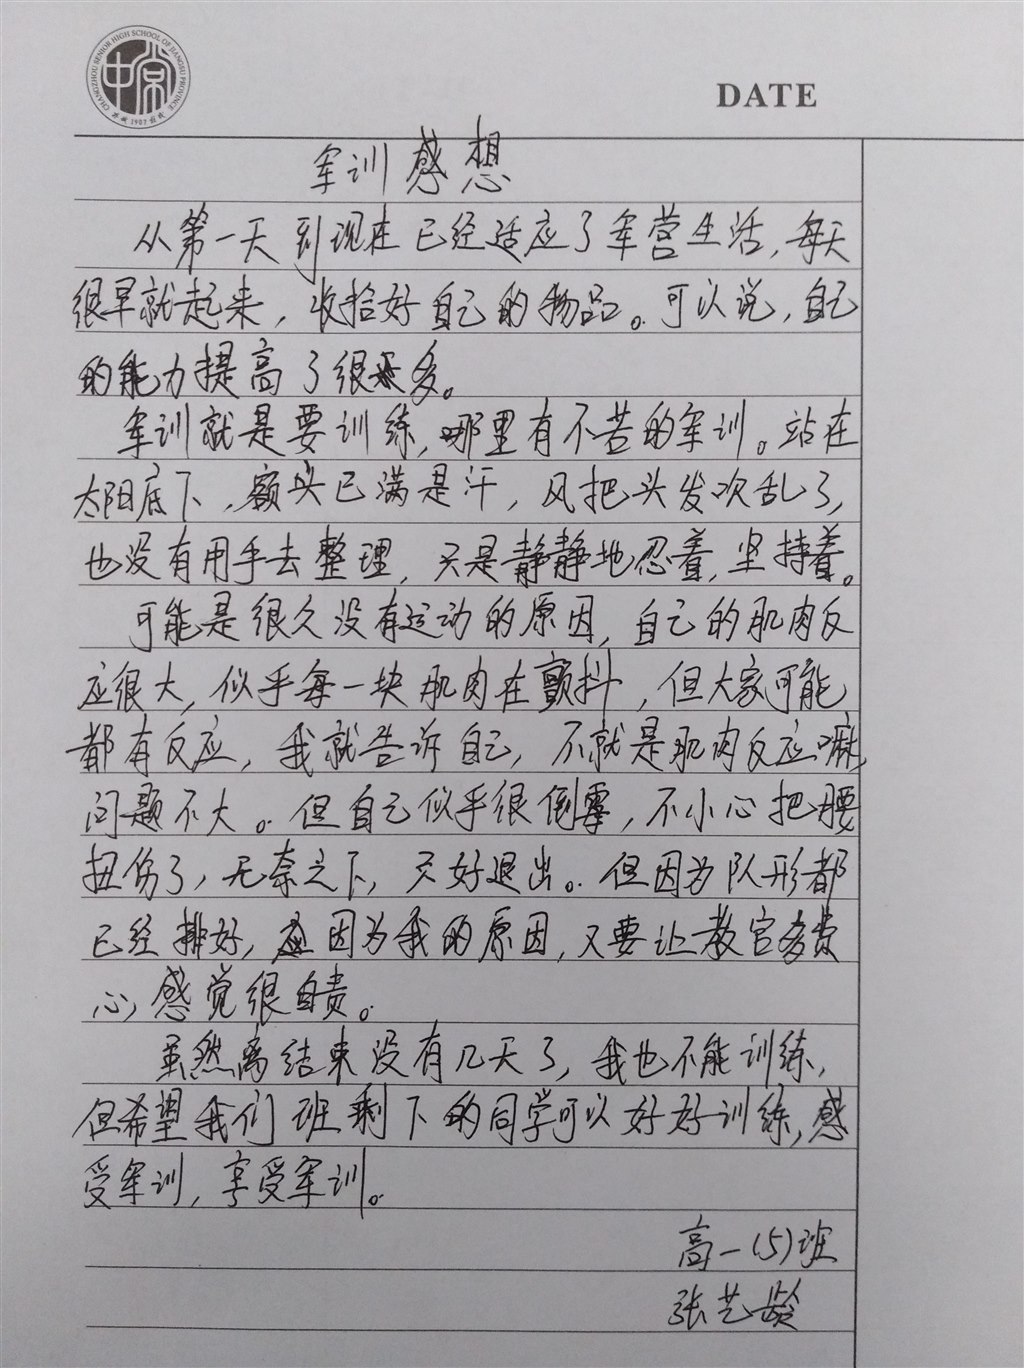 CHANGZHOU SENIOR HIGH SCHOOL OF JIANGSU PROVINCE
1907
DATE
军训感想
从第一天到现在已经适应了军营生活,每天
很早就起来,收拾好自己的物品。可以说,自己
的能力提高了很多。
军训就是要训练,哪里有不苦的军训。站在
太阳底下,额头已满是汗,风把头发吹乱了,
也没有用手去整理,只是静静地忍着,坚持着。
可能是很久没有运动的原因,自己的肌肉反
应很大,似乎每一块肌肉在颤抖,但大家可能
都有反应,我就告诉自己,不就是肌肉反应嘛,
问题不大。但自己似乎很倒霉,不小心把腰
扭伤了,无奈之下,只好退出。但因为队形都
已经排好,因为我的原因,又要让教官多费
心,感觉很自责。
虽然离结束没有几天了,我也不能训练,
但希望我们班剩下的同学可以好好训练,感
受军训,享受军训。
高一(5)班
张艺龄